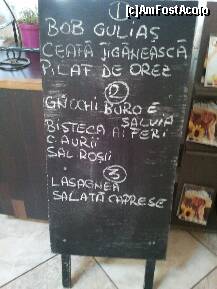 (c)AmFostAcolo
①
BOB GULIAȘ
CEAFĂ ȚIGĂNEASCĂ
PILAF DE OREZ
②
GNOCHI BURO E
SALVIA
BISTECA AI FERI
C. AURII
SAL ROȘII
③
LASAGNEA
SALATĂ CAPRESE